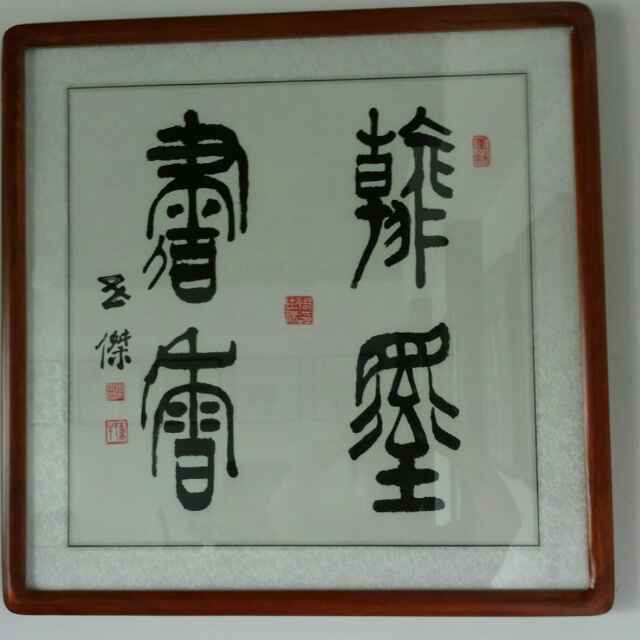 翰墨
書香
傑